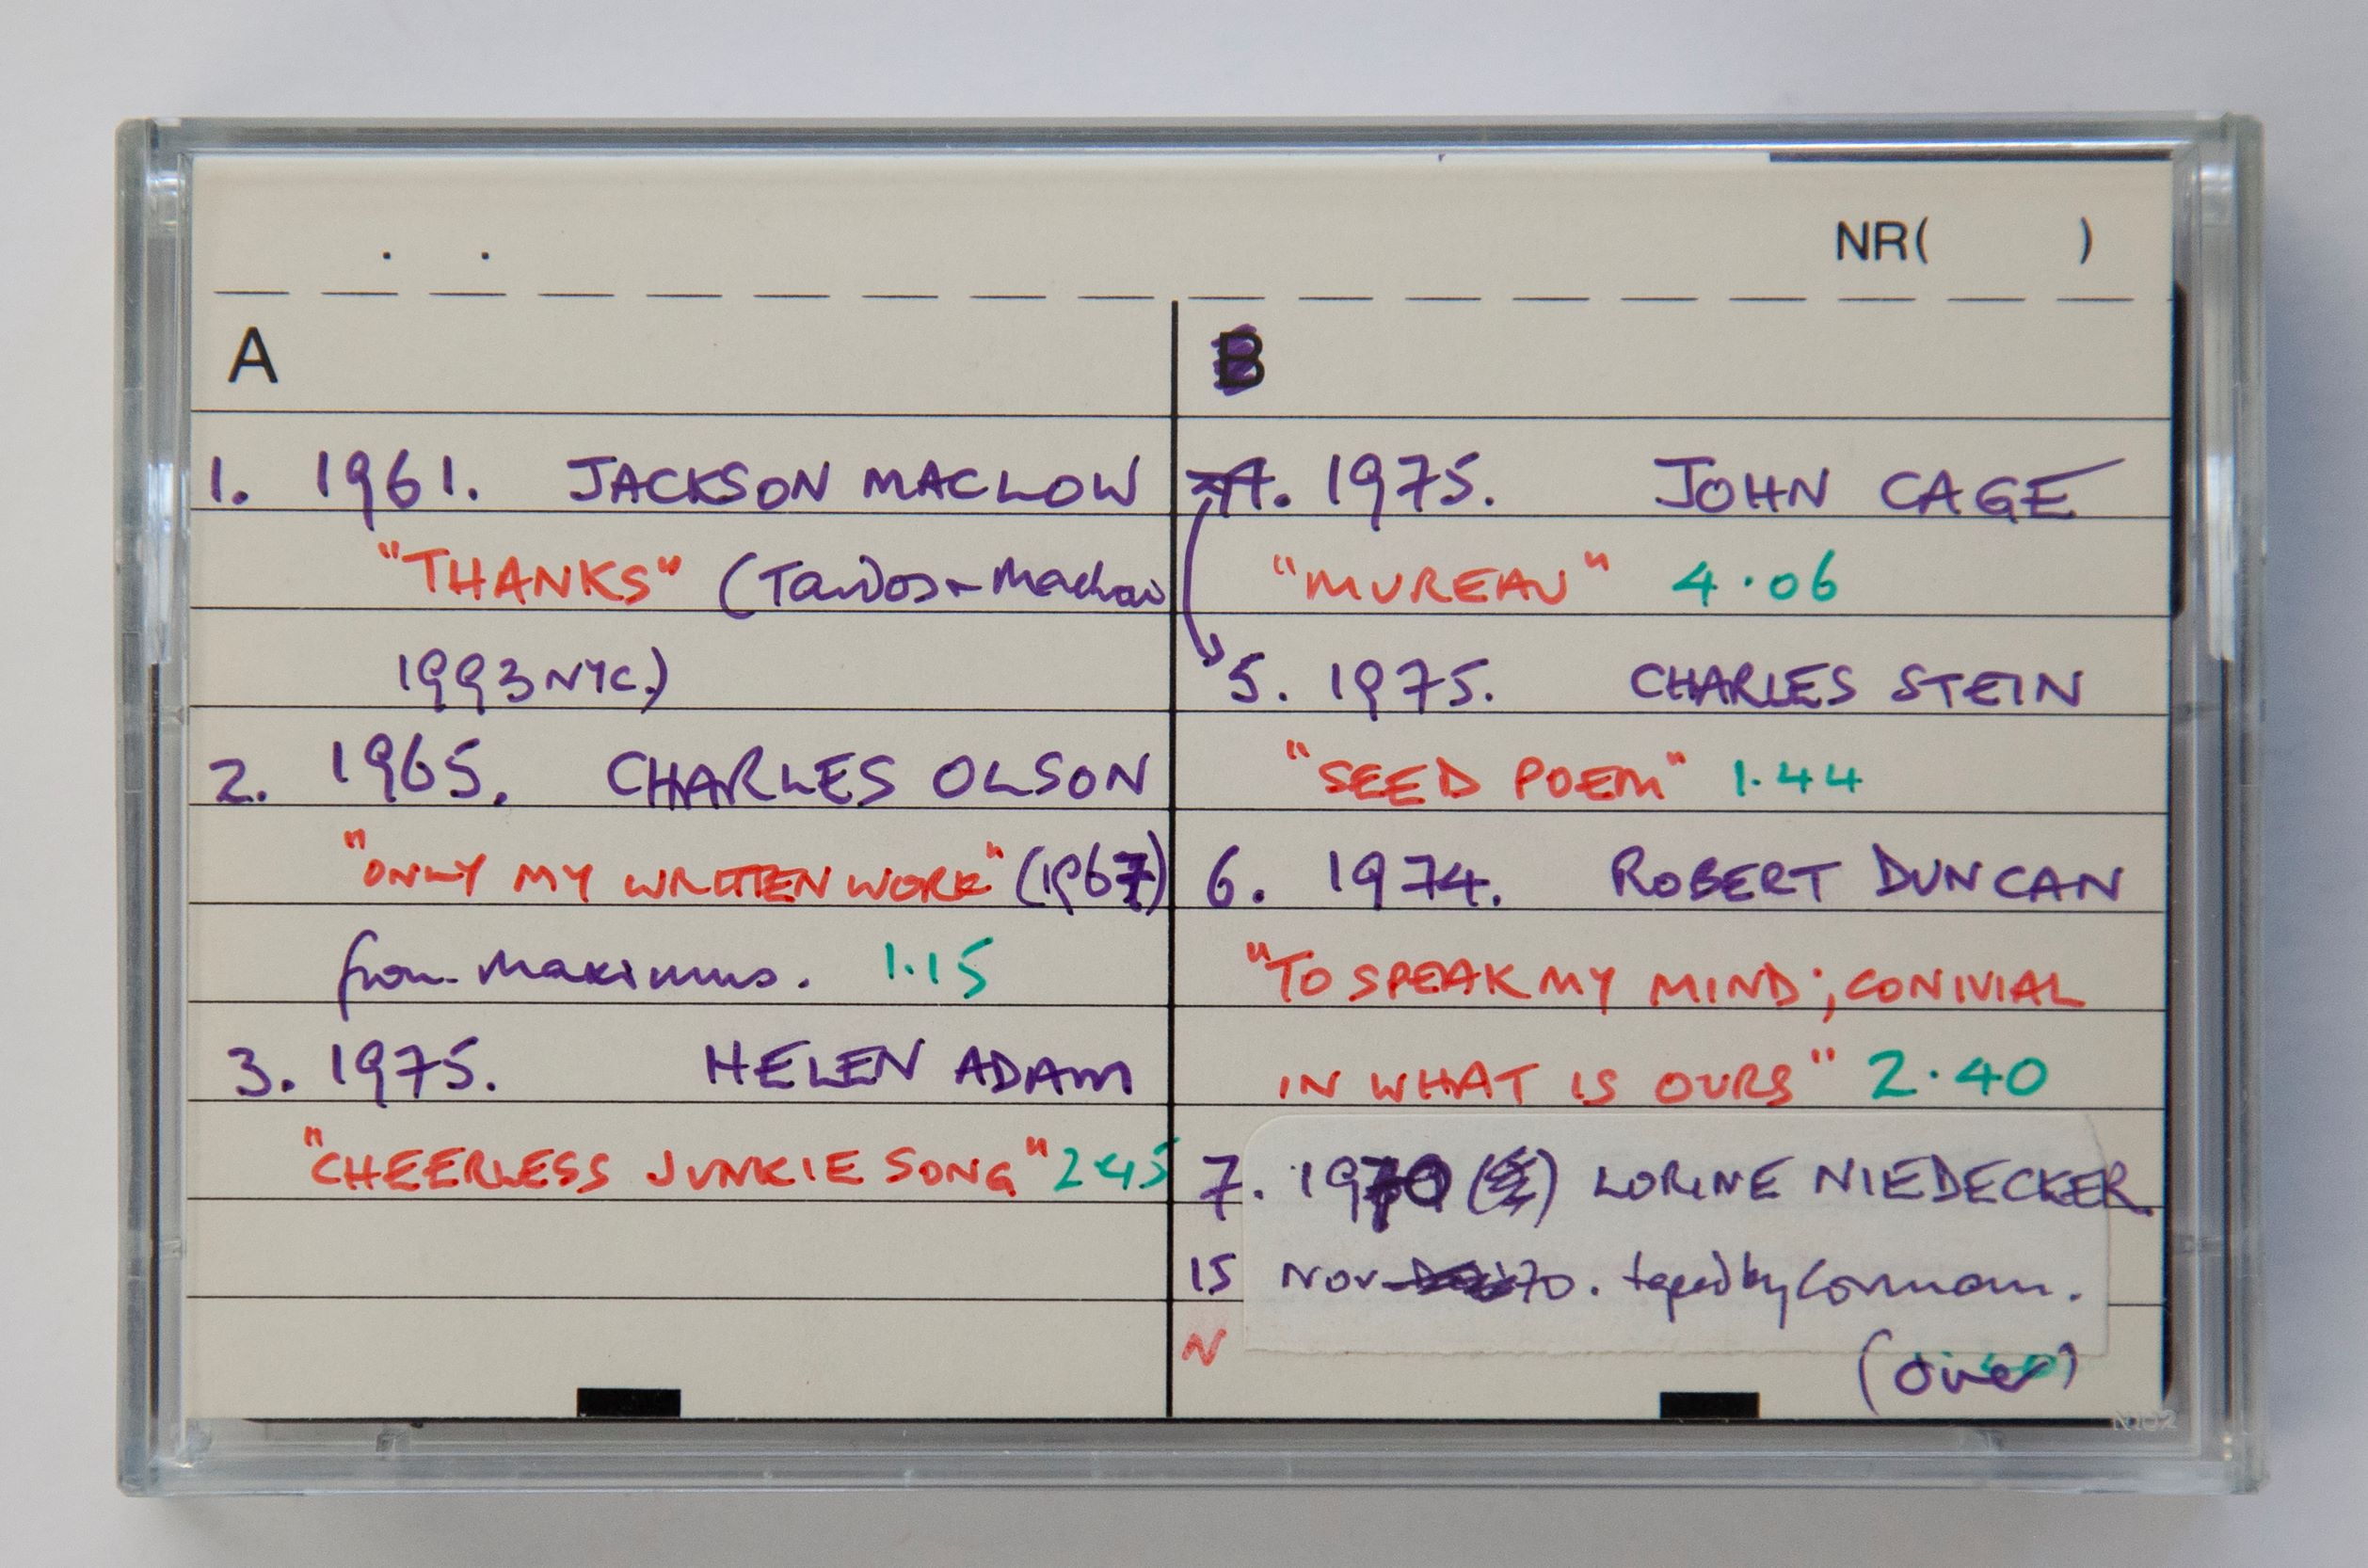 NR( )
A
1. 1961. JACKSON MACLOW
"THANKS" (Tardos + Maclow
1993 NYC.)
2. 1965. CHARLES OLSON
"ONLY MY WRITTEN WORK" (1967)
from Maximus. 1.15
3. 1975. HELEN ADAM
"CHEERLESS JUNKIE SONG" 2.45
B
4. 1975. JOHN CAGE
"MUREAU" 4.06
5. 1975. CHARLES STEIN
"SEED POEM" 1.44
6. 1974. ROBERT DUNCAN
"TO SPEAK MY MIND; CONIVIAL
IN WHAT IS OURS" 2.40
7. 1970 LORINE NIEDECKER.
15 Nov 70. taped by Corman.
N
(over)